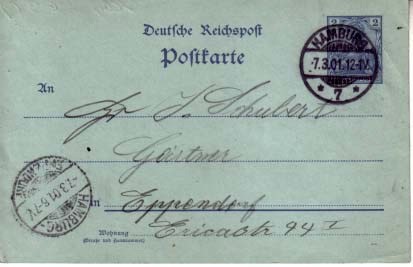 Deutsche Reichspost
Postkarte
2 2
HAMBURG
-7.3.01.12-1V.
* 7 *
An
J. Schubert
Gärtner
HAMBURG
-7.3.01.6-7N.
in Eppendorf
Wohnung Ericastr 94 I
(Straße und Hausnummer)